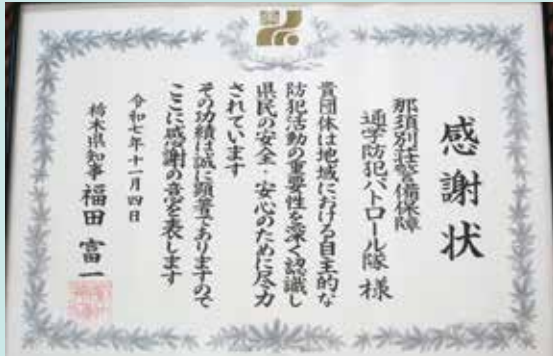 感謝状
那須別荘警備保障
通学防犯パトロール隊 様
貴団体は地域における自主的な
防犯活動の重要性を深く認識し
県民の安全・安心のために尽力
されています
その功績は誠に顕著でありますので
ここに感謝の意を表します
令和七年十一月四日
栃木県知事 福田富一